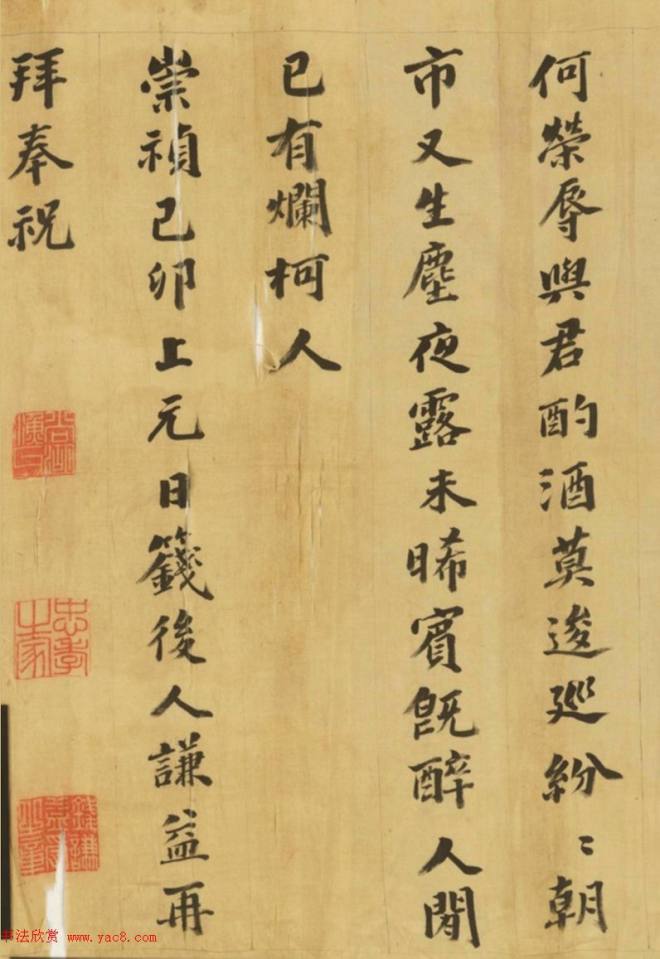 何榮辱與君酌酒莫逡巡紛〻朝
市又生塵夜露未晞賓既醉人閒
已有爛柯人
崇禎己卯上元日籛後人謙益再
拜奉祝
忠孝之家
錢謙
书法欣赏 www.yac8.com